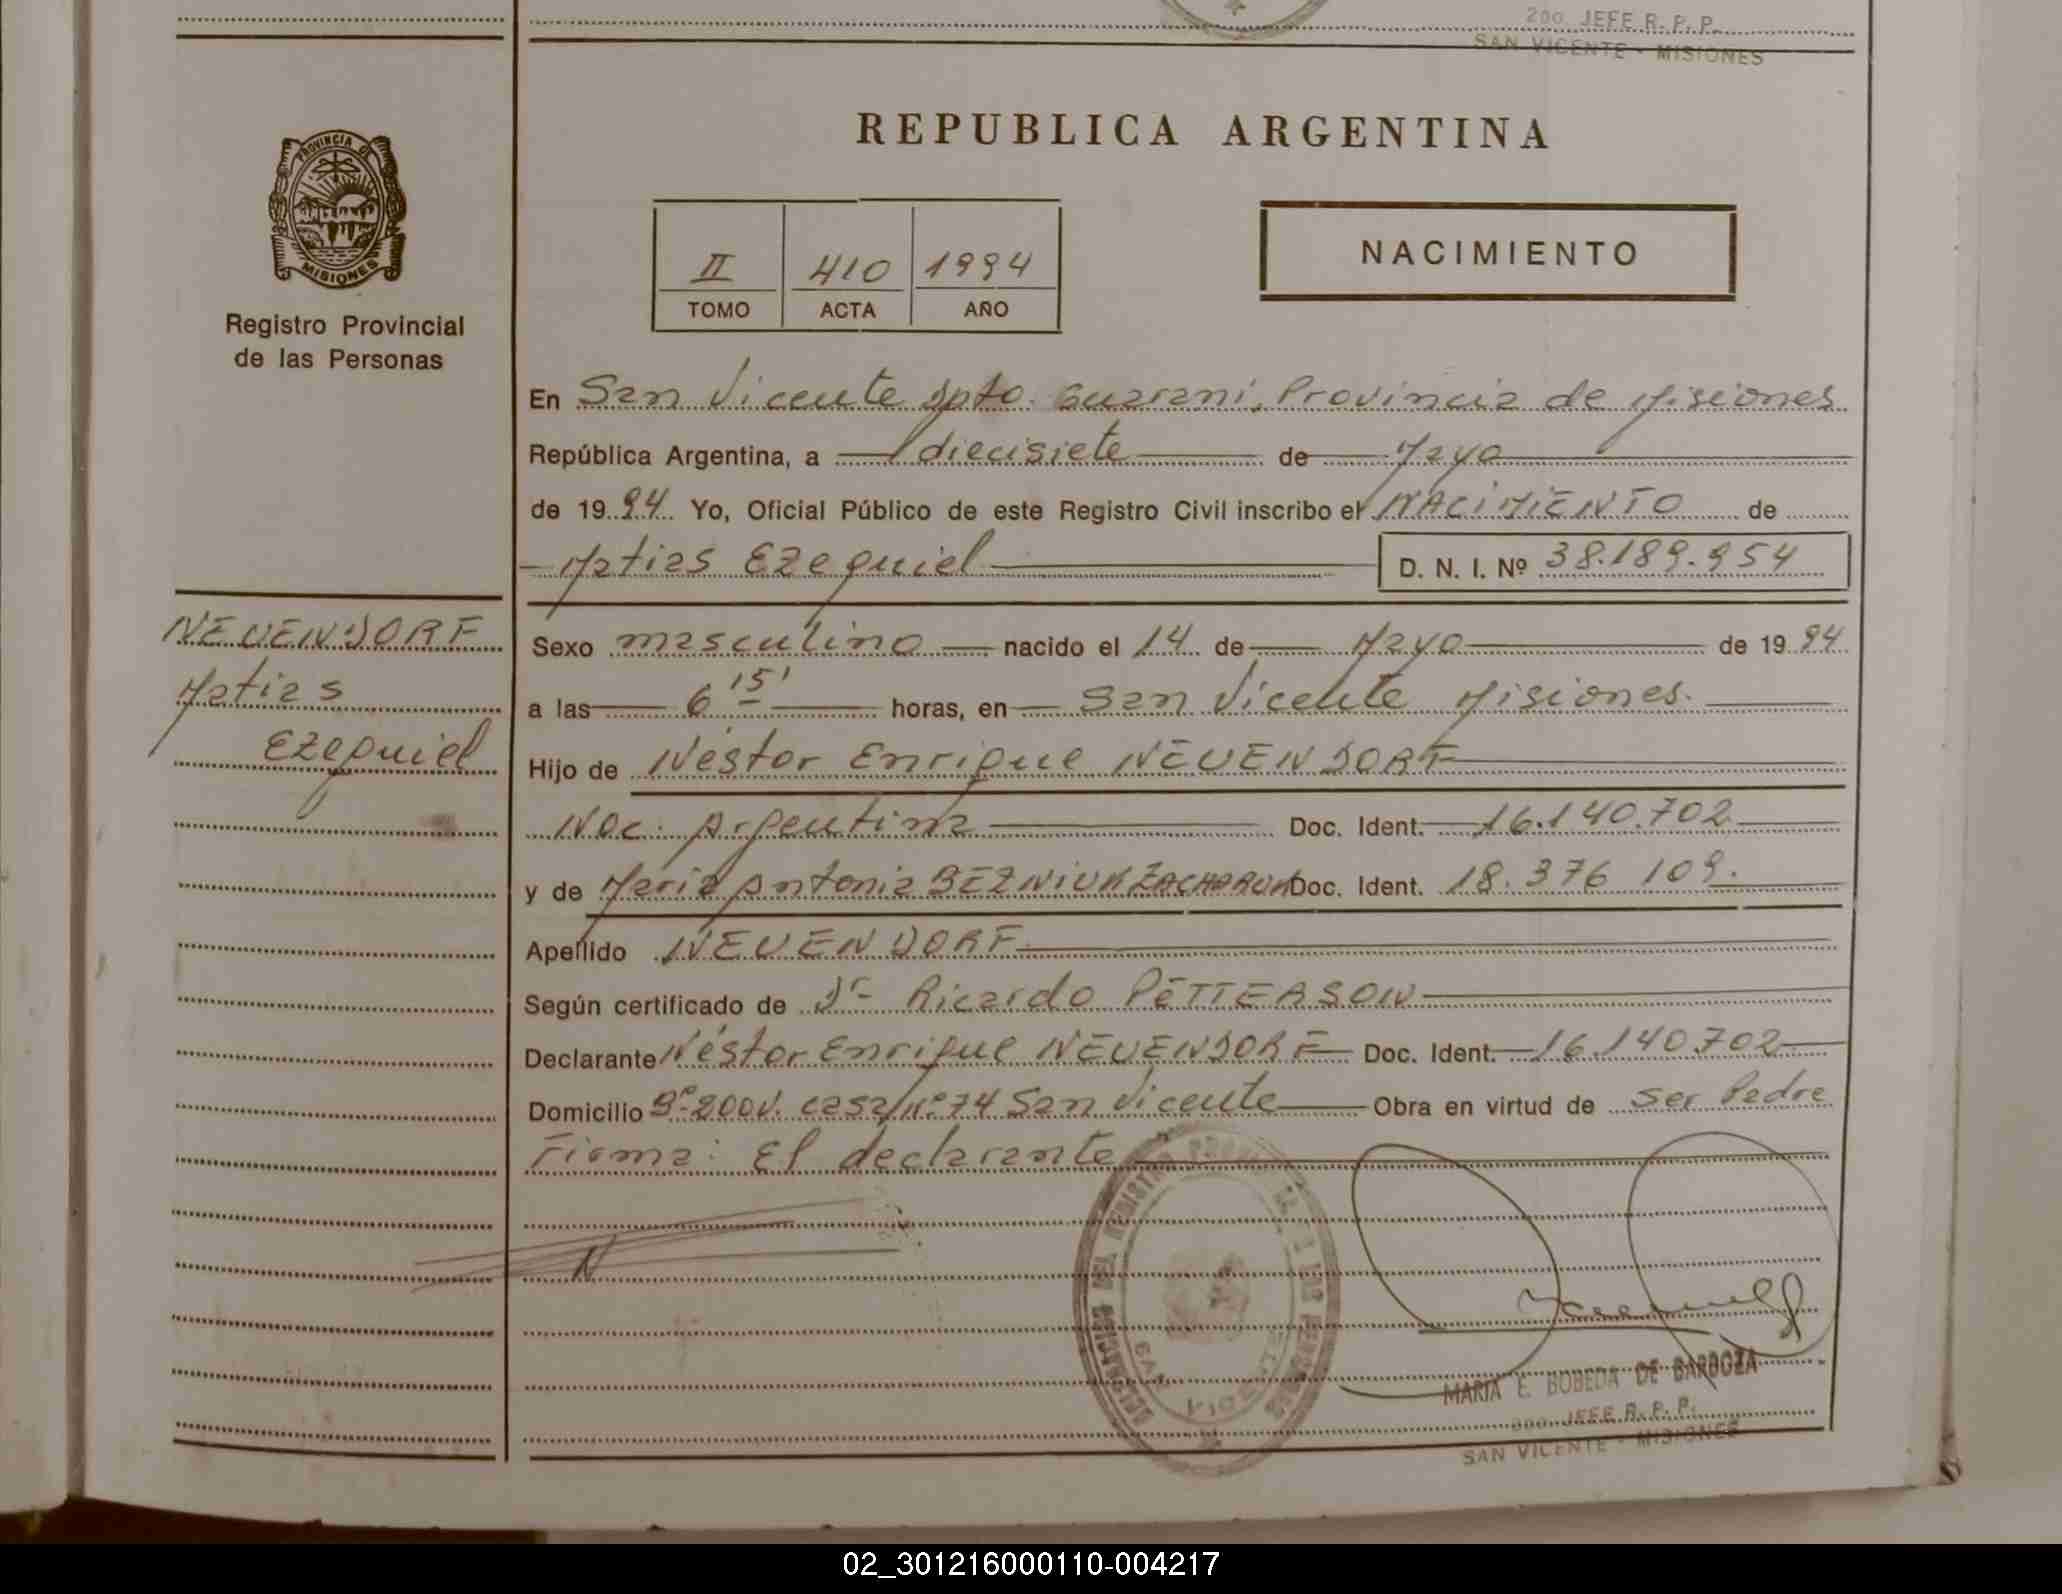 2do. JEFE R. P. P.
SAN VICENTE - MISIONES
PROVINCIA DE
MISIONES
Registro Provincial
de las Personas
REPUBLICA ARGENTINA
II 410 1994
TOMO ACTA AÑO
NACIMIENTO
En San Vicente Dpto. Guarani, Provincia de Misiones
República Argentina, a diecisiete de Mayo
de 1994 Yo, Oficial Público de este Registro Civil inscribo el NACIMIENTO de
Matias Ezequiel D. N. I. Nº 38.189.954
NEUENDORF
Matias
Ezequiel
Sexo masculino nacido el 14 de Mayo de 1994
a las 6 15' horas, en San Vicente Misiones.
Hijo de Néstor Enrique NEUENDORF
Nac. Argentina Doc. Ident. 16.140.702
y de Maria Antonia BEZNIUK ZACHARUK Doc. Ident. 18.376 109.
Apellido NEUENDORF
Según certificado de Dr Ricardo PETTERSON
Declarante Néstor Enrique NEUENDORF Doc. Ident. 16.140702
Domicilio Bº 200V. casa nº 74 San Vicente Obra en virtud de ser Padre
Firma: El declarante
MARIA E. BOBEDA DE BARBOZA
2do. JEFE R. P. P.
SAN VICENTE - MISIONES
02_301216000110-004217